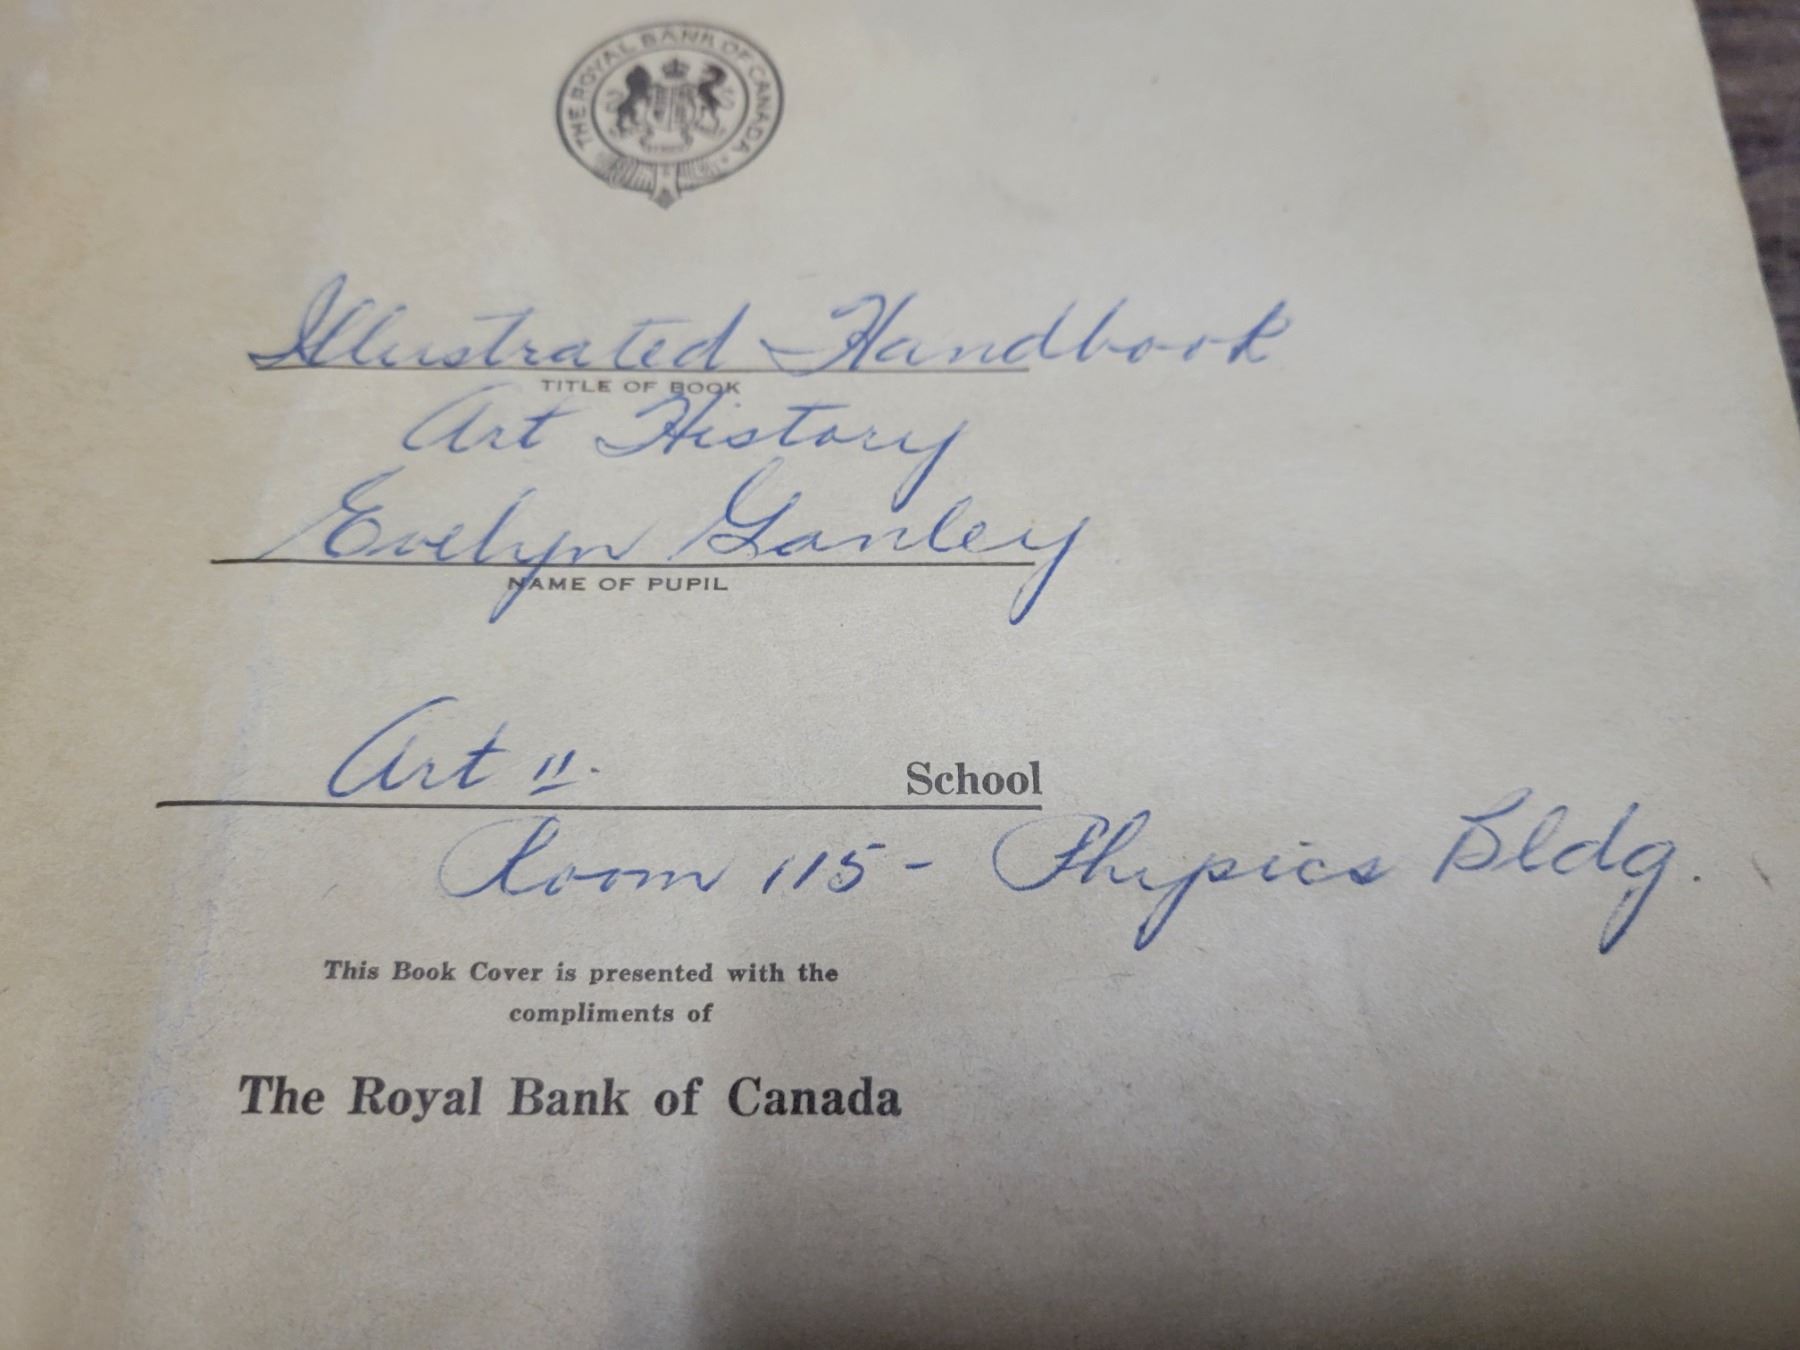 THE ROYAL BANK OF CANADA
Illustrated Handbook
TITLE OF BOOK
Art History
Evelyn Ganley
NAME OF PUPIL
Art II. School
Room 115 - Physics Bldg.
This Book Cover is presented with the
compliments of
The Royal Bank of Canada